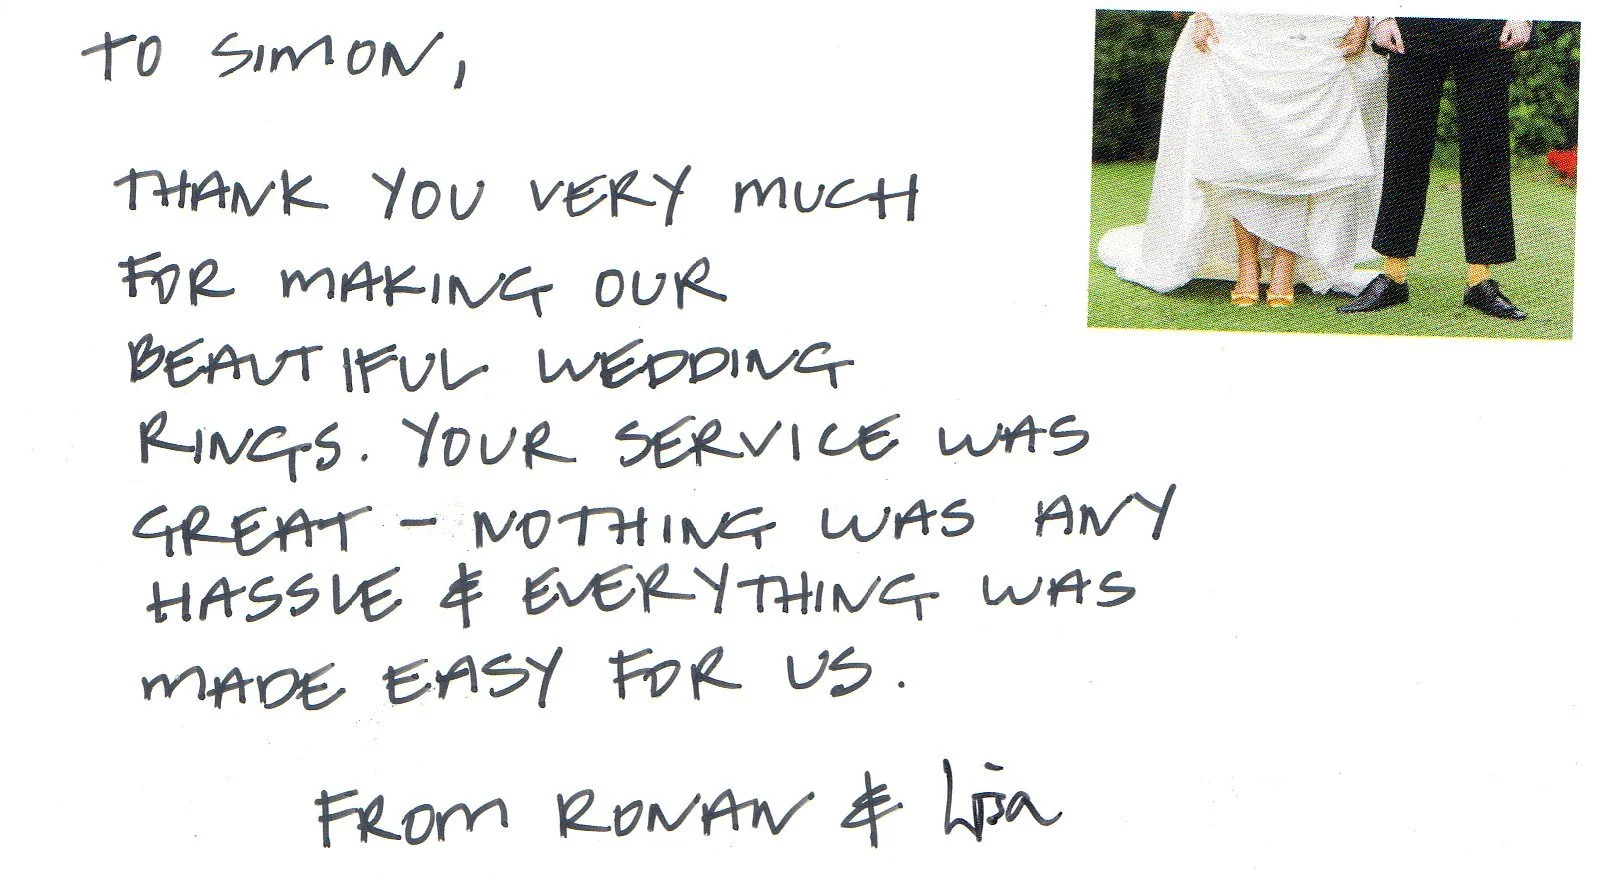 TO SIMON,
THANK YOU VERY MUCH
FOR MAKING OUR
BEAUTIFUL WEDDING
RINGS. YOUR SERVICE WAS
GREAT - NOTHING WAS ANY
HASSLE & EVERYTHING WAS
MADE EASY FOR US.
FROM RONAN & Lisa